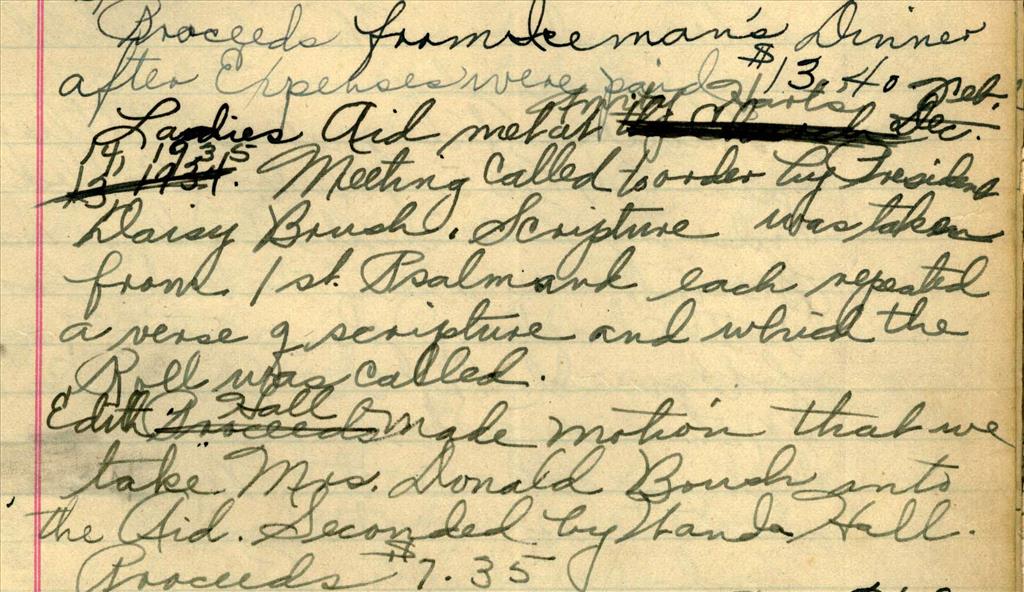 Proceeds from Iceman's Dinner
after Expenses were paid $13.40
Emily Harts Feb.
Ladies Aid met at the Church Dec.
14, 1935
13, 1934. Meeting called to order by President
Daisy Brush. Scripture was taken
from 1st. Psalm and each repeated
a verse of scripture and which the
Roll was called.
Hall
Edith Proceeds made motion that we
take Mrs. Donald Brush into
the Aid. Seconded by Wanda Hall.
Proceeds $7.35